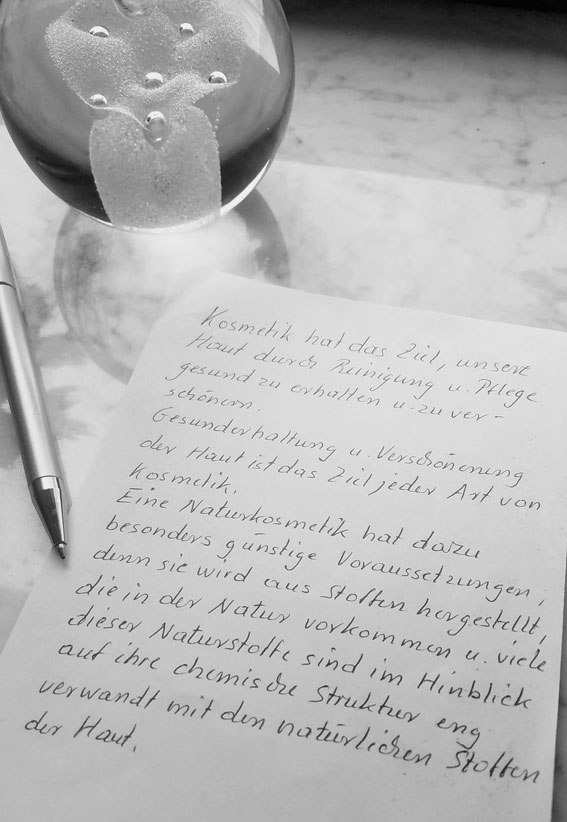 Kosmetik hat das Ziel, unsere
Haut durch Reinigung u. Pflege
gesund zu erhalten u. zu ver-
schönern.
Gesunderhaltung u. Verschönerung
der Haut ist das Ziel jeder Art von
Kosmetik.
Eine Naturkosmetik hat dazu
besonders günstige Voraussetzungen;
denn sie wird aus Stoffen hergestellt,
die in der Natur vorkommen u. viele
dieser Naturstoffe sind im Hinblick
auf ihre chemische Struktur eng
verwandt mit den natürlichen Stoffen
der Haut.